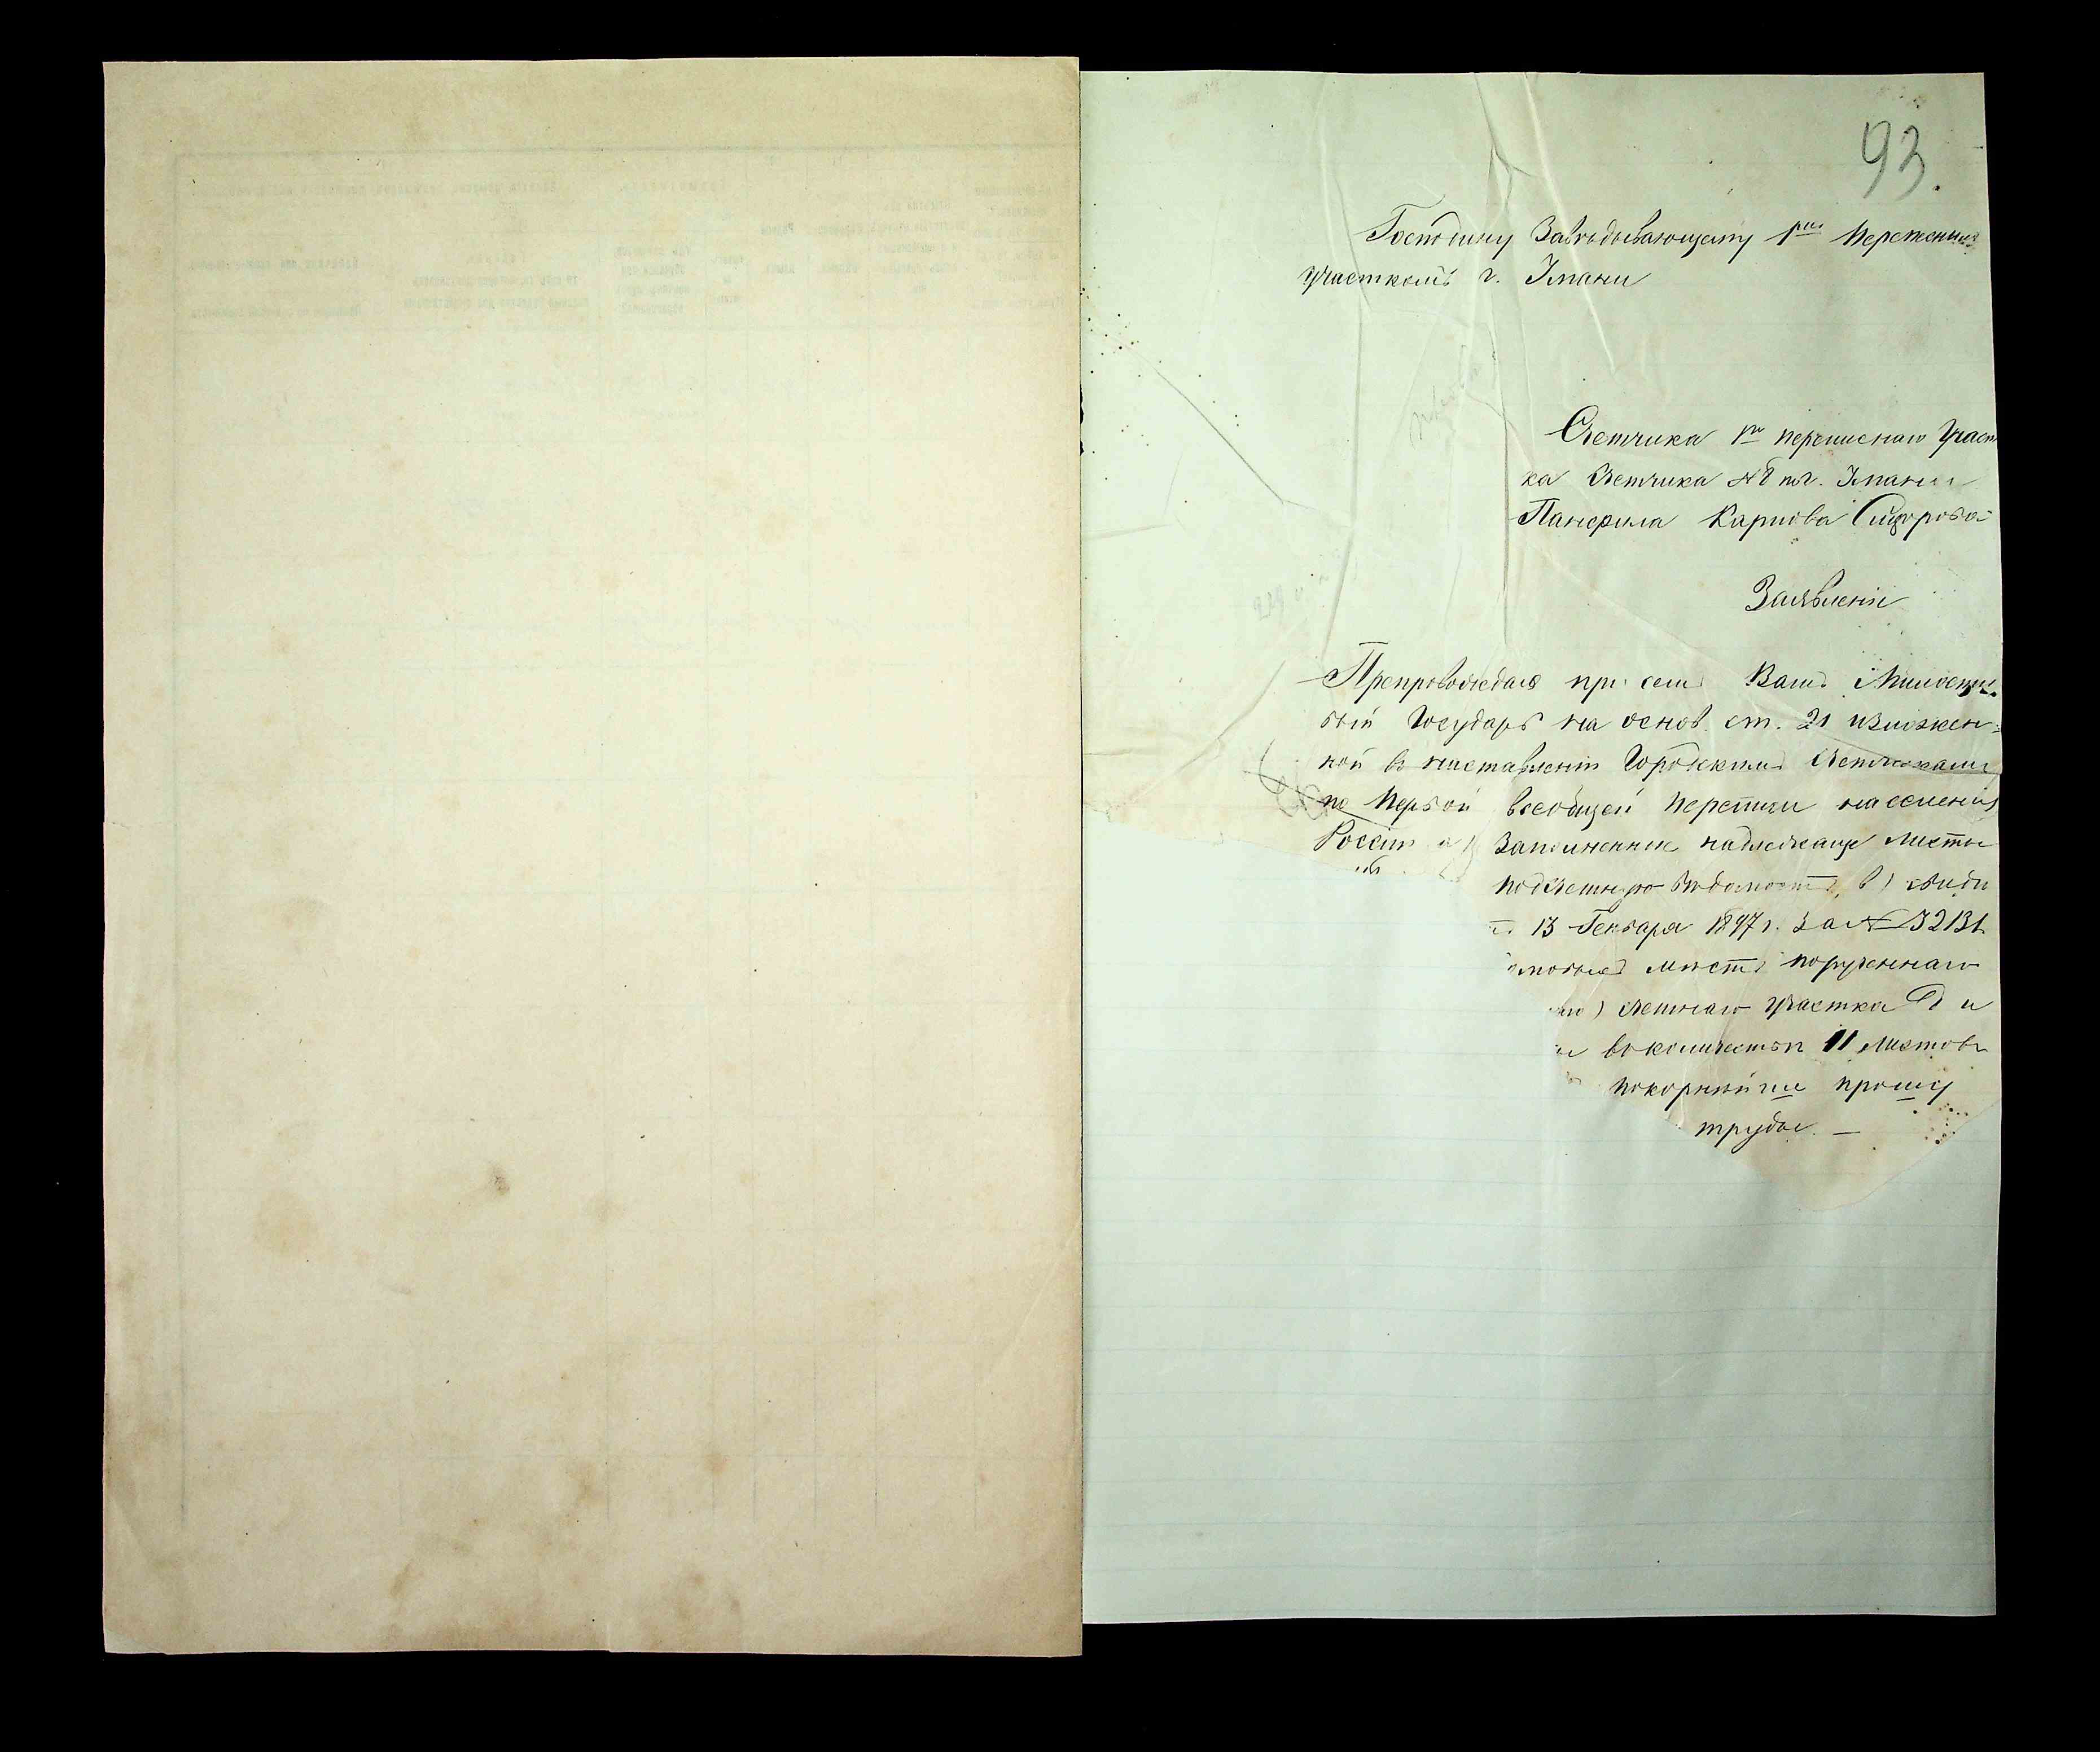 93.
Господину Завѣдывающему 1мъ Переписнымъ
участкомъ г. Умани
Счетчика 1го переписнаго Участ
ка Счетчика № 8 по г. Умани
Панфила Карпова Сидорова
Заявленіе
Препровождая при семъ Вамъ Милости
вый Государь на основ. ст. 21 изложен-
ной въ наставленіи Городскимъ Счетчикамъ
по Первой всеобщей переписи населенія
Россіи а) Заполненные надлежаще листы
подсчетную вѣдомость, в)
13 Генваря 1897 г. За № 3213
листъ порученнаго
счетнаго участка и
въ количествѣ 11 листовъ
покорнѣйше прошу
труды. —